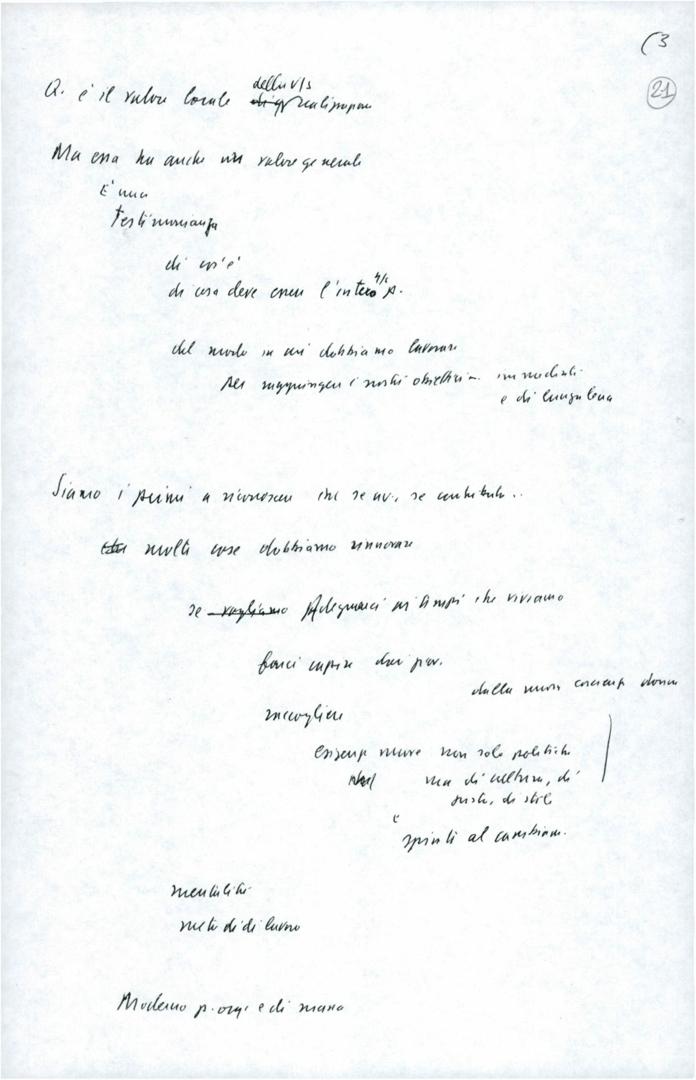 (3
21
Q. è il valore locale della v/s realizzazione
Ma essa ha anche un valore generale
È una
testimonianza
di cos'è
di cosa deve essere l'intero n/s p.
del modo in cui dobbiamo lavorare
per raggiungere i nostri obiettivi immediati
e di lunga lena
Siamo i primi a riconoscere che se av., se contribuito..
molte cose dobbiamo rinnovare
se vogliamo Adeguarci ai tempi che viviamo
farci capire dai giov.
dalla nuova coscienza donna
raccogliere
esigenze nuove non solo politiche
ma di cultura, di
gusto, di stile
e
spinti al cambiam.
mentalità
metodi di lavoro
Moderno p. org. e di massa